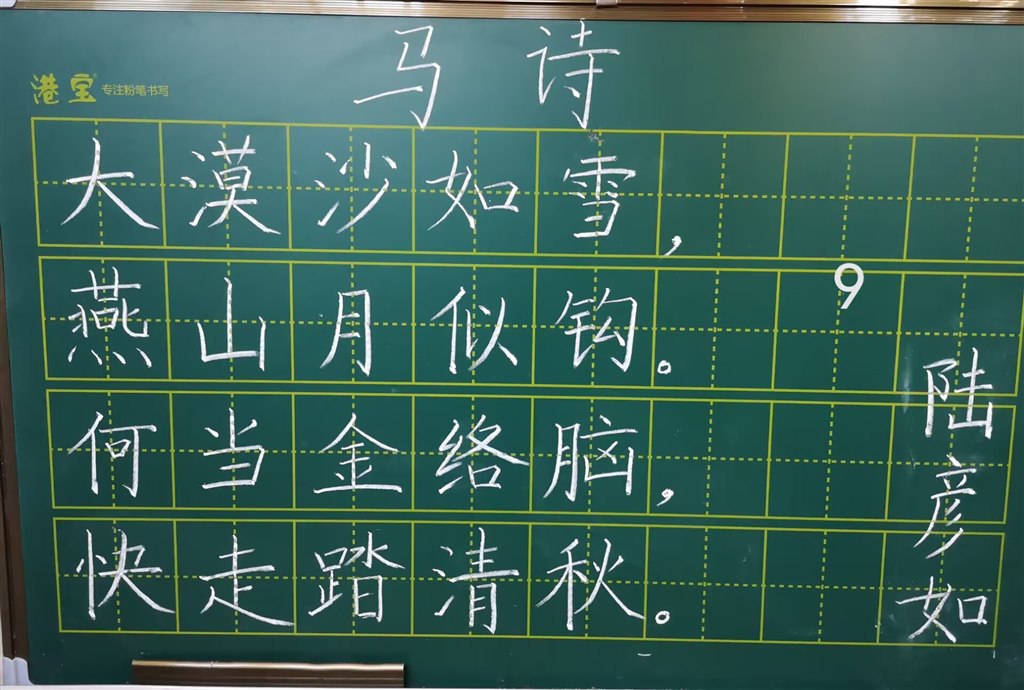 港宝 专注粉笔书写
马诗
大漠沙如雪,
燕山月似钩。
9
何当金络脑,
快走踏清秋。
陆彦如